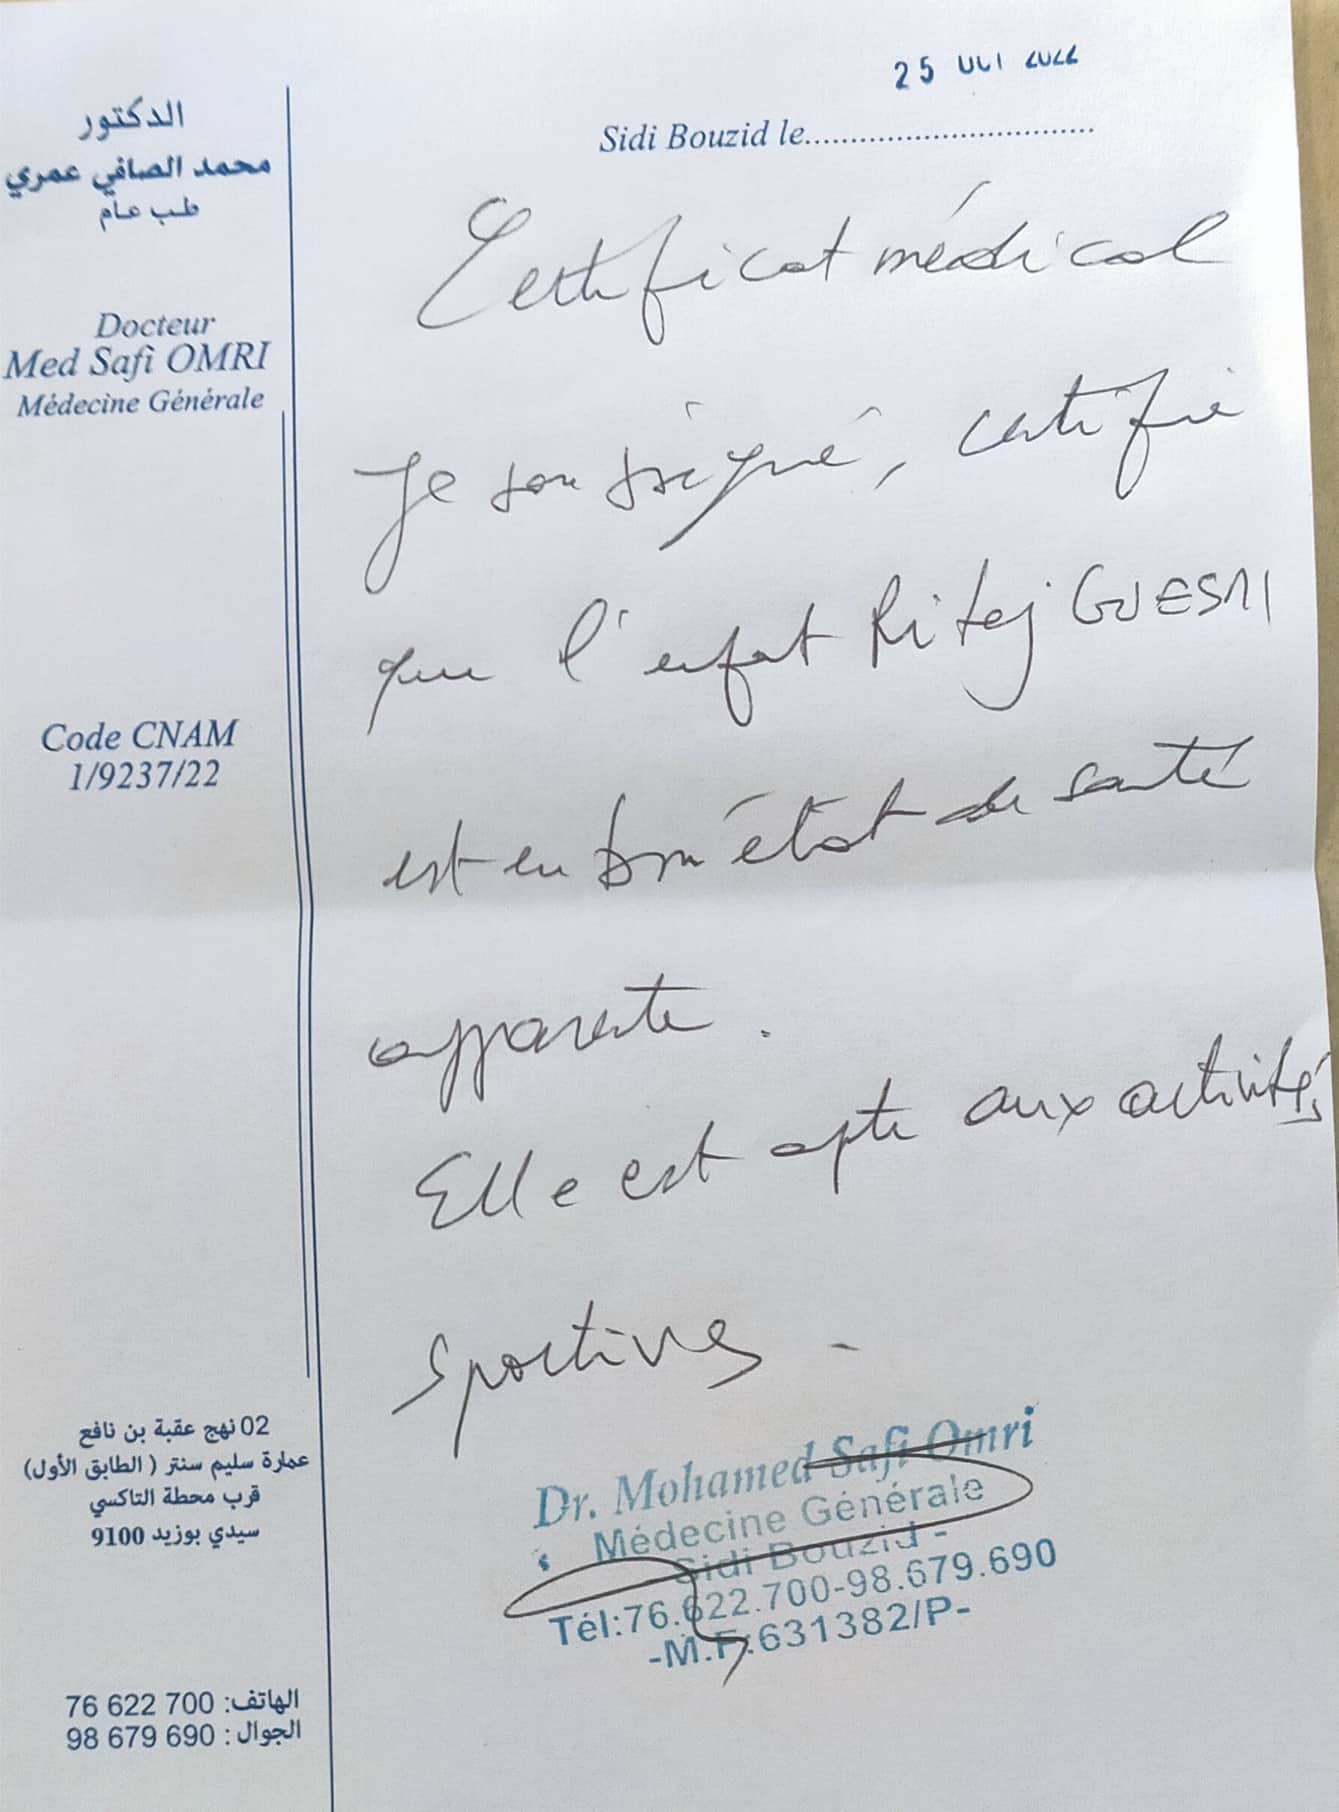 25 OCT 2022
Sidi Bouzid le..............................
الدكتور
محمد الصافي عمري
طب عام
Docteur
Med Safi OMRI
Médecine Générale
Code CNAM
1/9237/22
02 نهج عقبة بن نافع
عمارة سليم سنتر ( الطابق الأول)
قرب محطة التاكسي
سيدي بوزيد 9100
الهاتف: 76 622 700
الجوال : 98 679 690
Certificat médical
Je sousigné, certifie
que l'enfant Ritej GUESMI
est en bon état de santé
apparente.
Elle est apte aux activités
sportives -
Dr. Mohamed Safi Omri
Médecine Générale
Sidi Bouzid -
Tél:76.622.700-98.679.690
-M.F:631382/P-